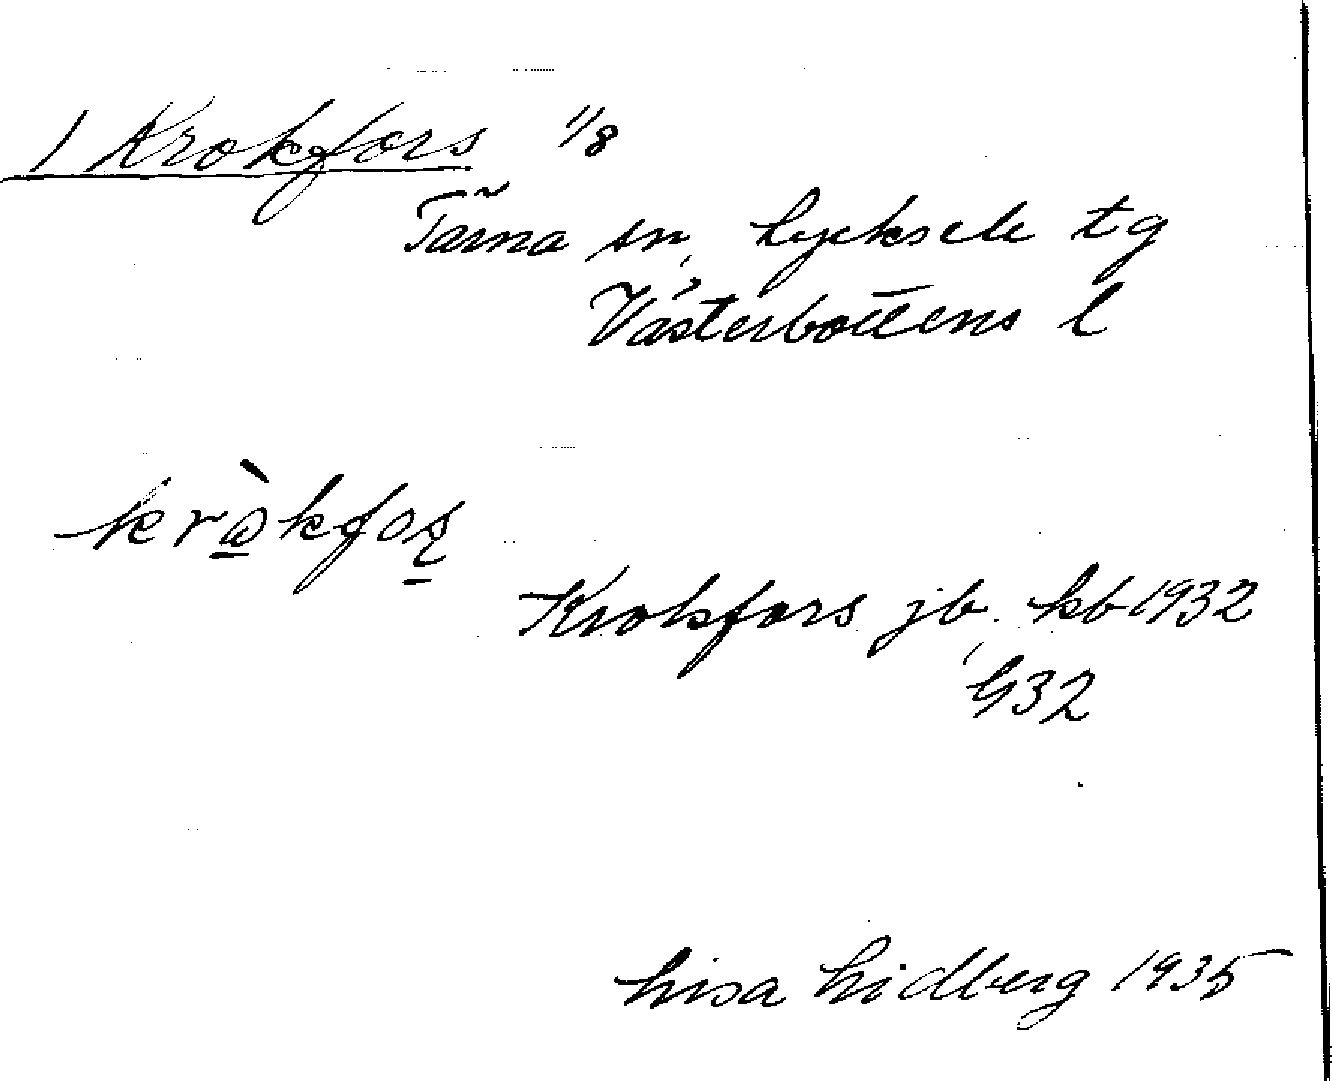 1 Krokfors 1/8
Tärna sn, Lycksele tg
Västerbottens l
kròkfoʂ
Krokfors jb, kb 1932
G32
Lisa Lidberg 1935